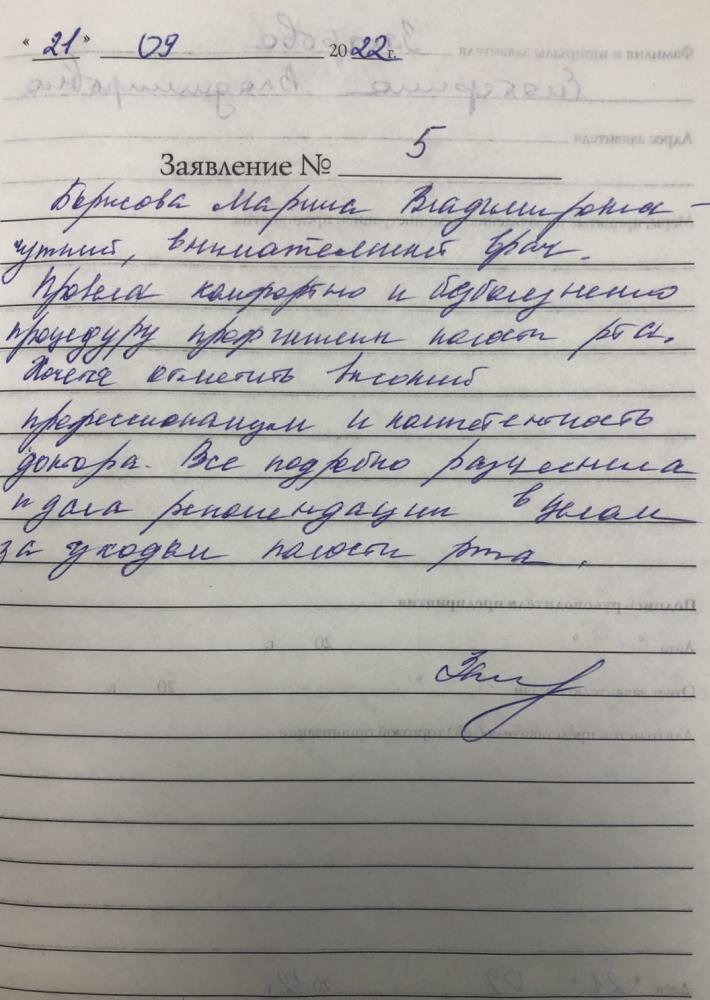 « 21 » 09 2022 г.
Заявление № 5
Борисова Марина Владимировна -
чуткий, внимательный врач.
Провела комфортно и безболезненно
процедуру профгигиены полости рта.
Хочется отметить высокий
профессионализм и компетентность
доктора. Все подробно разъяснила
и дала рекомендации в целом
за уходом полости рта.